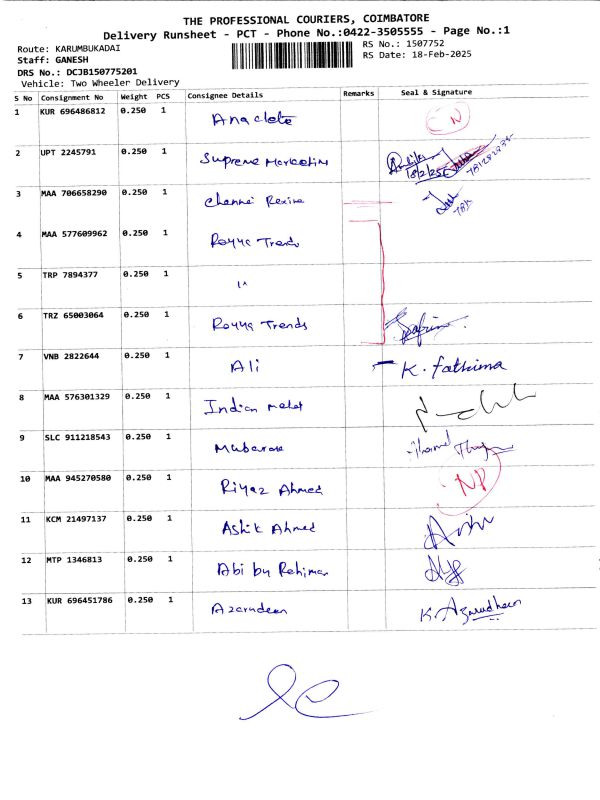 THE PROFESSIONAL COURIERS, COIMBATORE
Delivery Runsheet - PCT - Phone No.:0422-3505555 - Page No.:1
Route: KARUMBUKADAI
RS No.: 1507752
Staff: GANESH
RS Date: 18-Feb-2025
DRS No.: DCJB150775201
Vehicle: Two Wheeler Delivery
S No Consignment No Weight PCS Consignee Details Remarks Seal & Signature
1 KUR 696486812 0.250 1 Anaclete N
2 UPT 2245791 0.250 1 Supreme Marketing 18/2/25
3 MAA 706658290 0.250 1 Chennai Rexine
4 MAA 577609962 0.250 1 Royya Trends
5 TRP 7894377 0.250 1 "
6 TRZ 65003064 0.250 1 Royya Trends
7 VNB 2822644 0.250 1 Ali K. Fathima
8 MAA 576301329 0.250 1 Indian
9 SLC 911218543 0.250 1 Mubarak
10 MAA 945270580 0.250 1 Riyaz Ahmed NP
11 KCM 21497137 0.250 1 Ashik Ahmed
12 MTP 1346813 0.250 1 Abi bu Rehiman
13 KUR 696451786 0.250 1 Azarudeen K Azarudheen